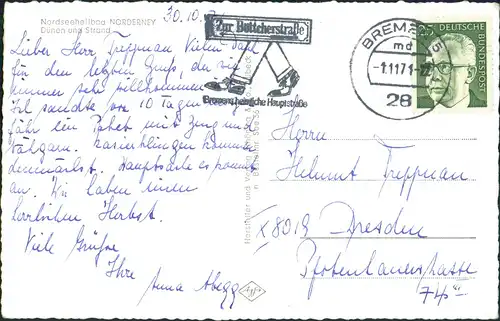 Nordseeheilbad NORDERNEY
Dünen und Strand
30.10.
Lieber Herr Treppman Vielen Dank
für den letzten Gruß, der wie
immer sehr willkommen
Ich sandte vor 10 Tagen
ein Paket mit
Rasierklingen kommen
demnächst. Hauptsache es kommt
an. Wir haben einen
herrlichen Herbst.
Viele Grüße
Ihre Anna Abegg
Zur Böttcherstraße
Bremens heimliche Hauptstraße
BREMEN 5
md
-1.11.71-22
28
DEUTSCHE
BUNDESPOST
Herrn
Helmut Treppman
X 8019 Dresden
Pfotenhauerstrasse
74